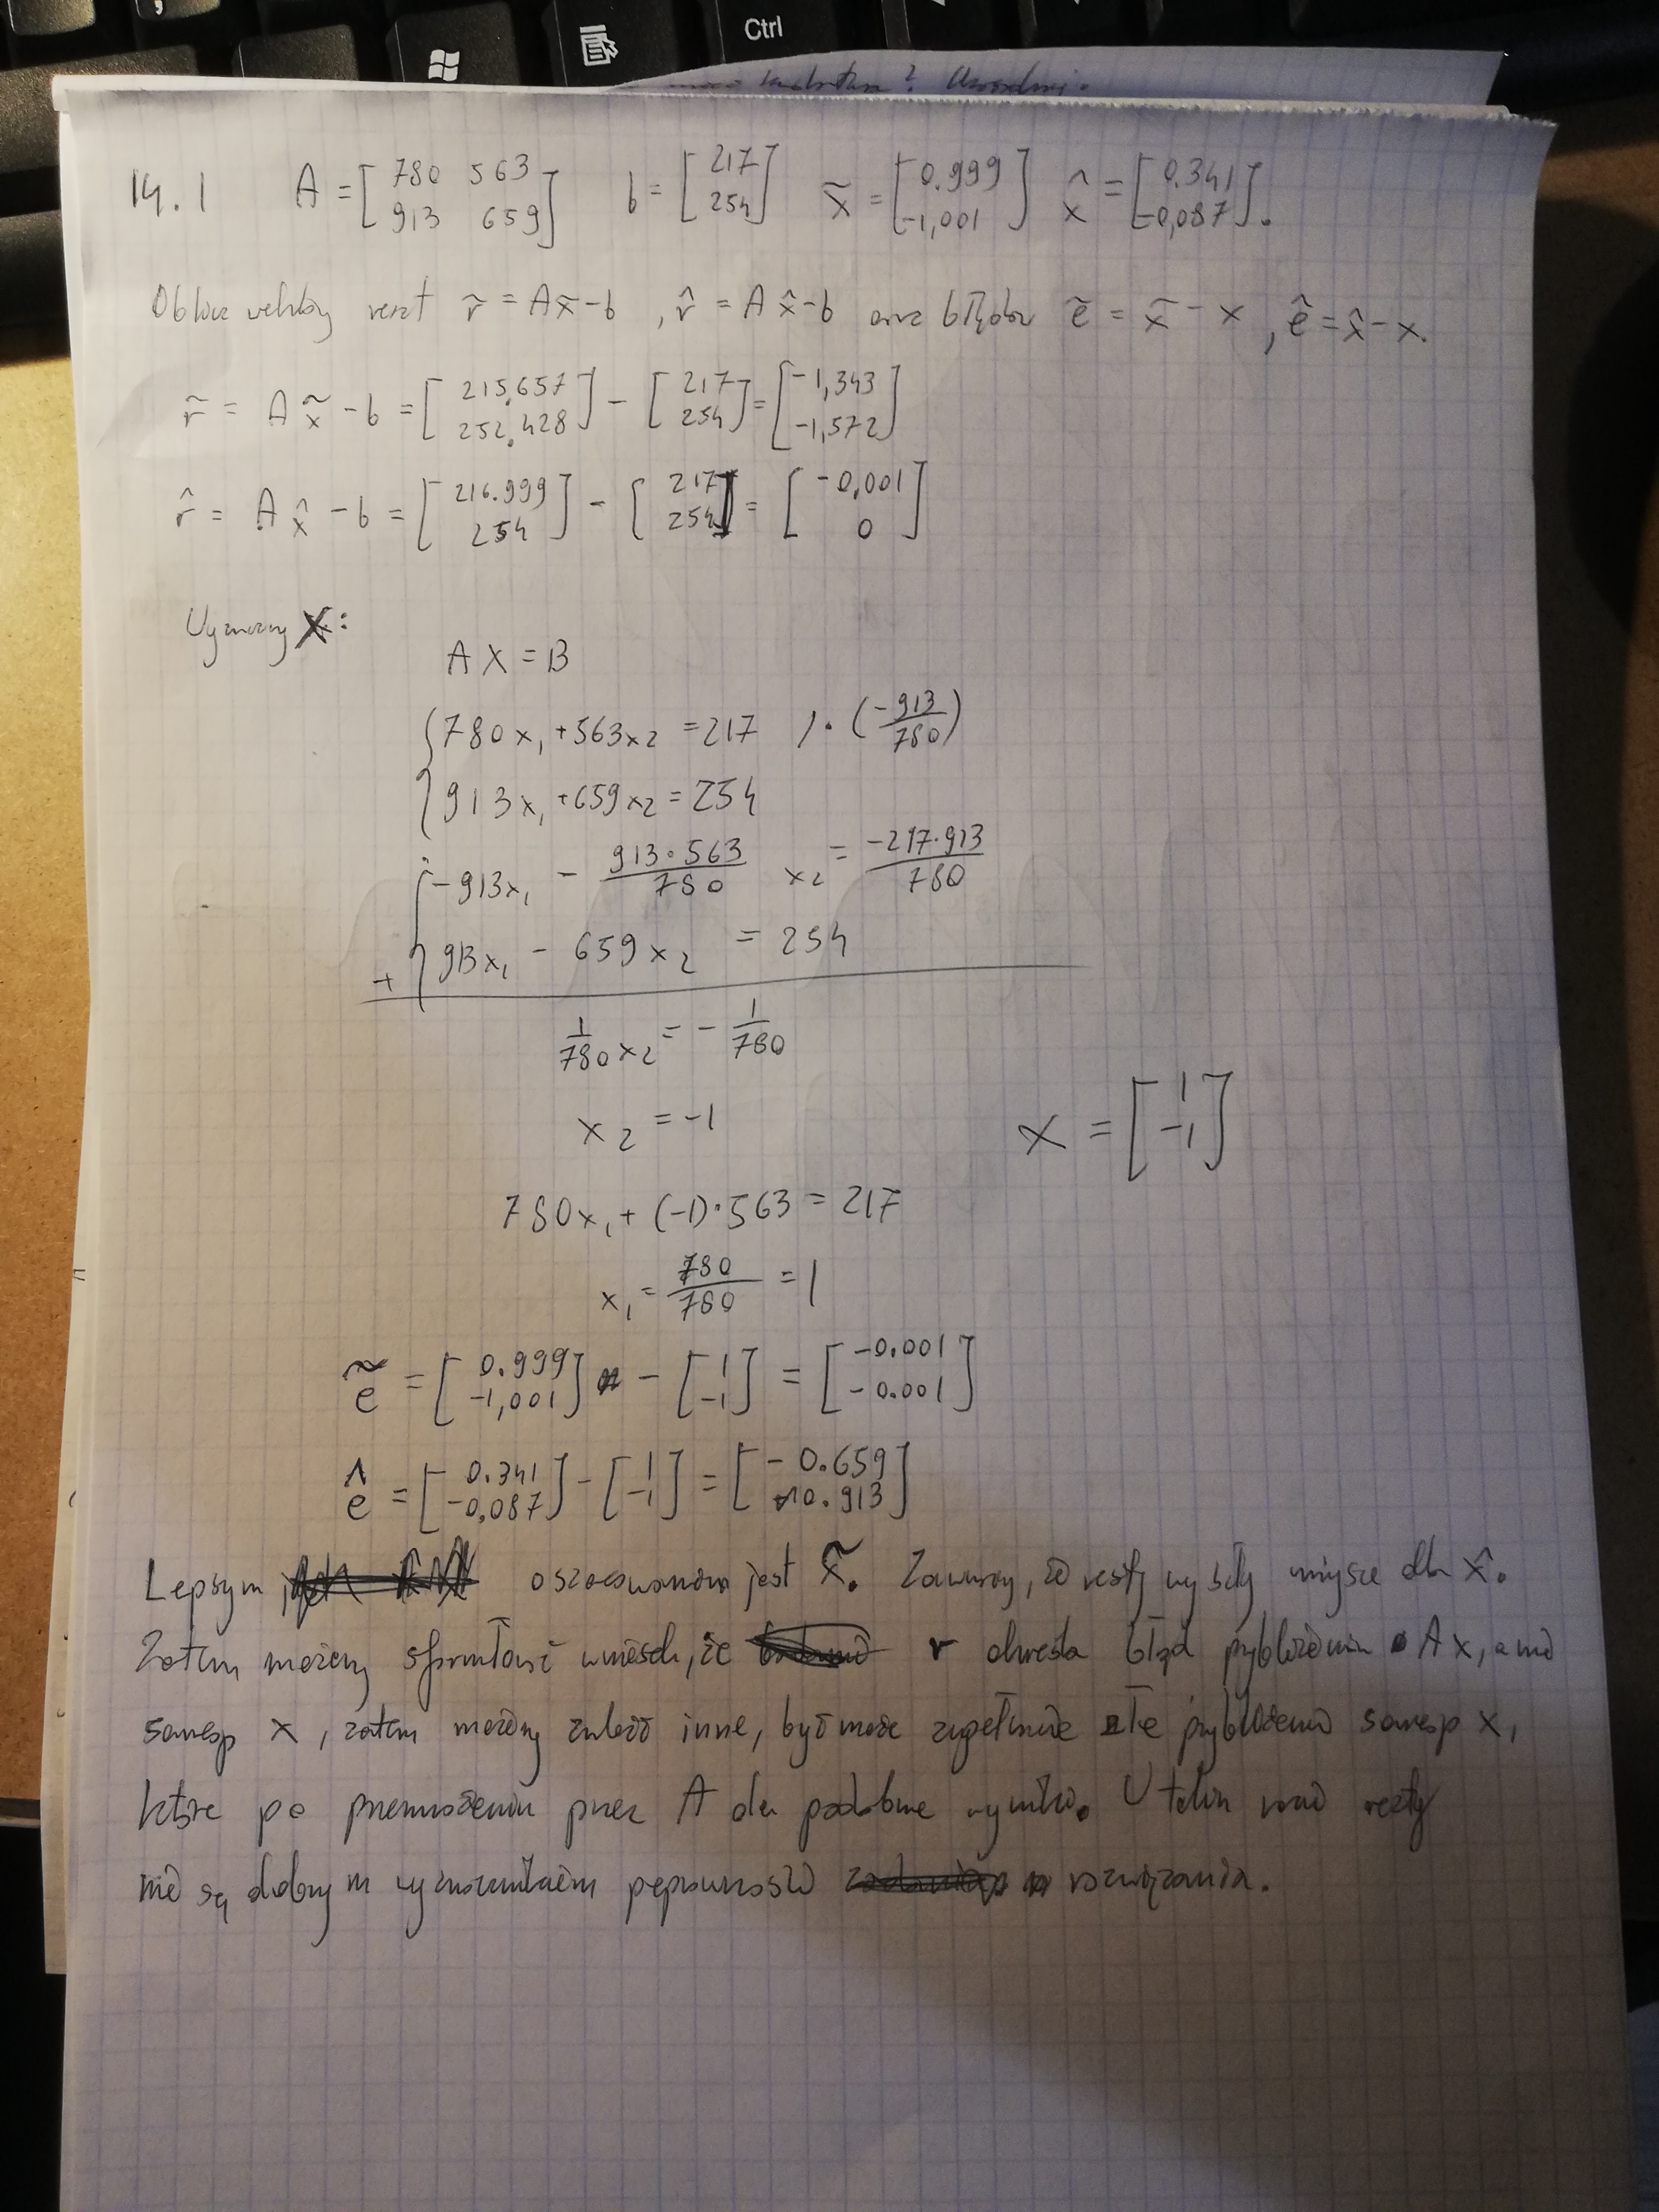 Ctrl
14.1 A = [780 563; 913 659] b = [217; 254] x̃ = [0.999; -1,001] x̂ = [0.341; -0,087].
Oblicz wektory reszt r̃ = Ax̃ - b, r̂ = Ax̂ - b oraz błędów ẽ = x̃ - x, ê = x̂ - x.
r̃ = Ax̃ - b = [215,657; 252,428] - [217; 254] = [-1,343; -1,572]
r̂ = Ax̂ - b = [216.999; 254] - [217; 254] = [-0,001; 0]
Wyznaczmy X:
AX = B
{780x₁ + 563x₂ = 217 /·(-913/780)
{913x₁ + 659x₂ = 254
{-913x₁ - 913·563/780 x₂ = -217·913/780
+ {913x₁ - 659x₂ = 254
1/780 x₂ = - 1/780
x₂ = -1
x = [1; -1]
780x₁ + (-1)·563 = 217
x₁ = 780/780 = 1
ẽ = [0.999; -1,001] - [1; -1] = [-0.001; -0.001]
ê = [0.341; -0,087] - [1; -1] = [-0.659; 0.913]
Lepszym oszacowaniem jest x̃. Zauważmy, że reszty wyszły mniejsze dla x̂.
Zatem możemy sformułować wniosek, że r określa błąd przybliżenia Ax, a nie
samego x, zatem możemy znaleźć inne, być może zupełnie złe przybliżenie samego x,
które po przemnożeniu przez A da podobne wyniki. W takim razie reszty
nie są dobrym wyznacznikiem poprawności rozwiązania.